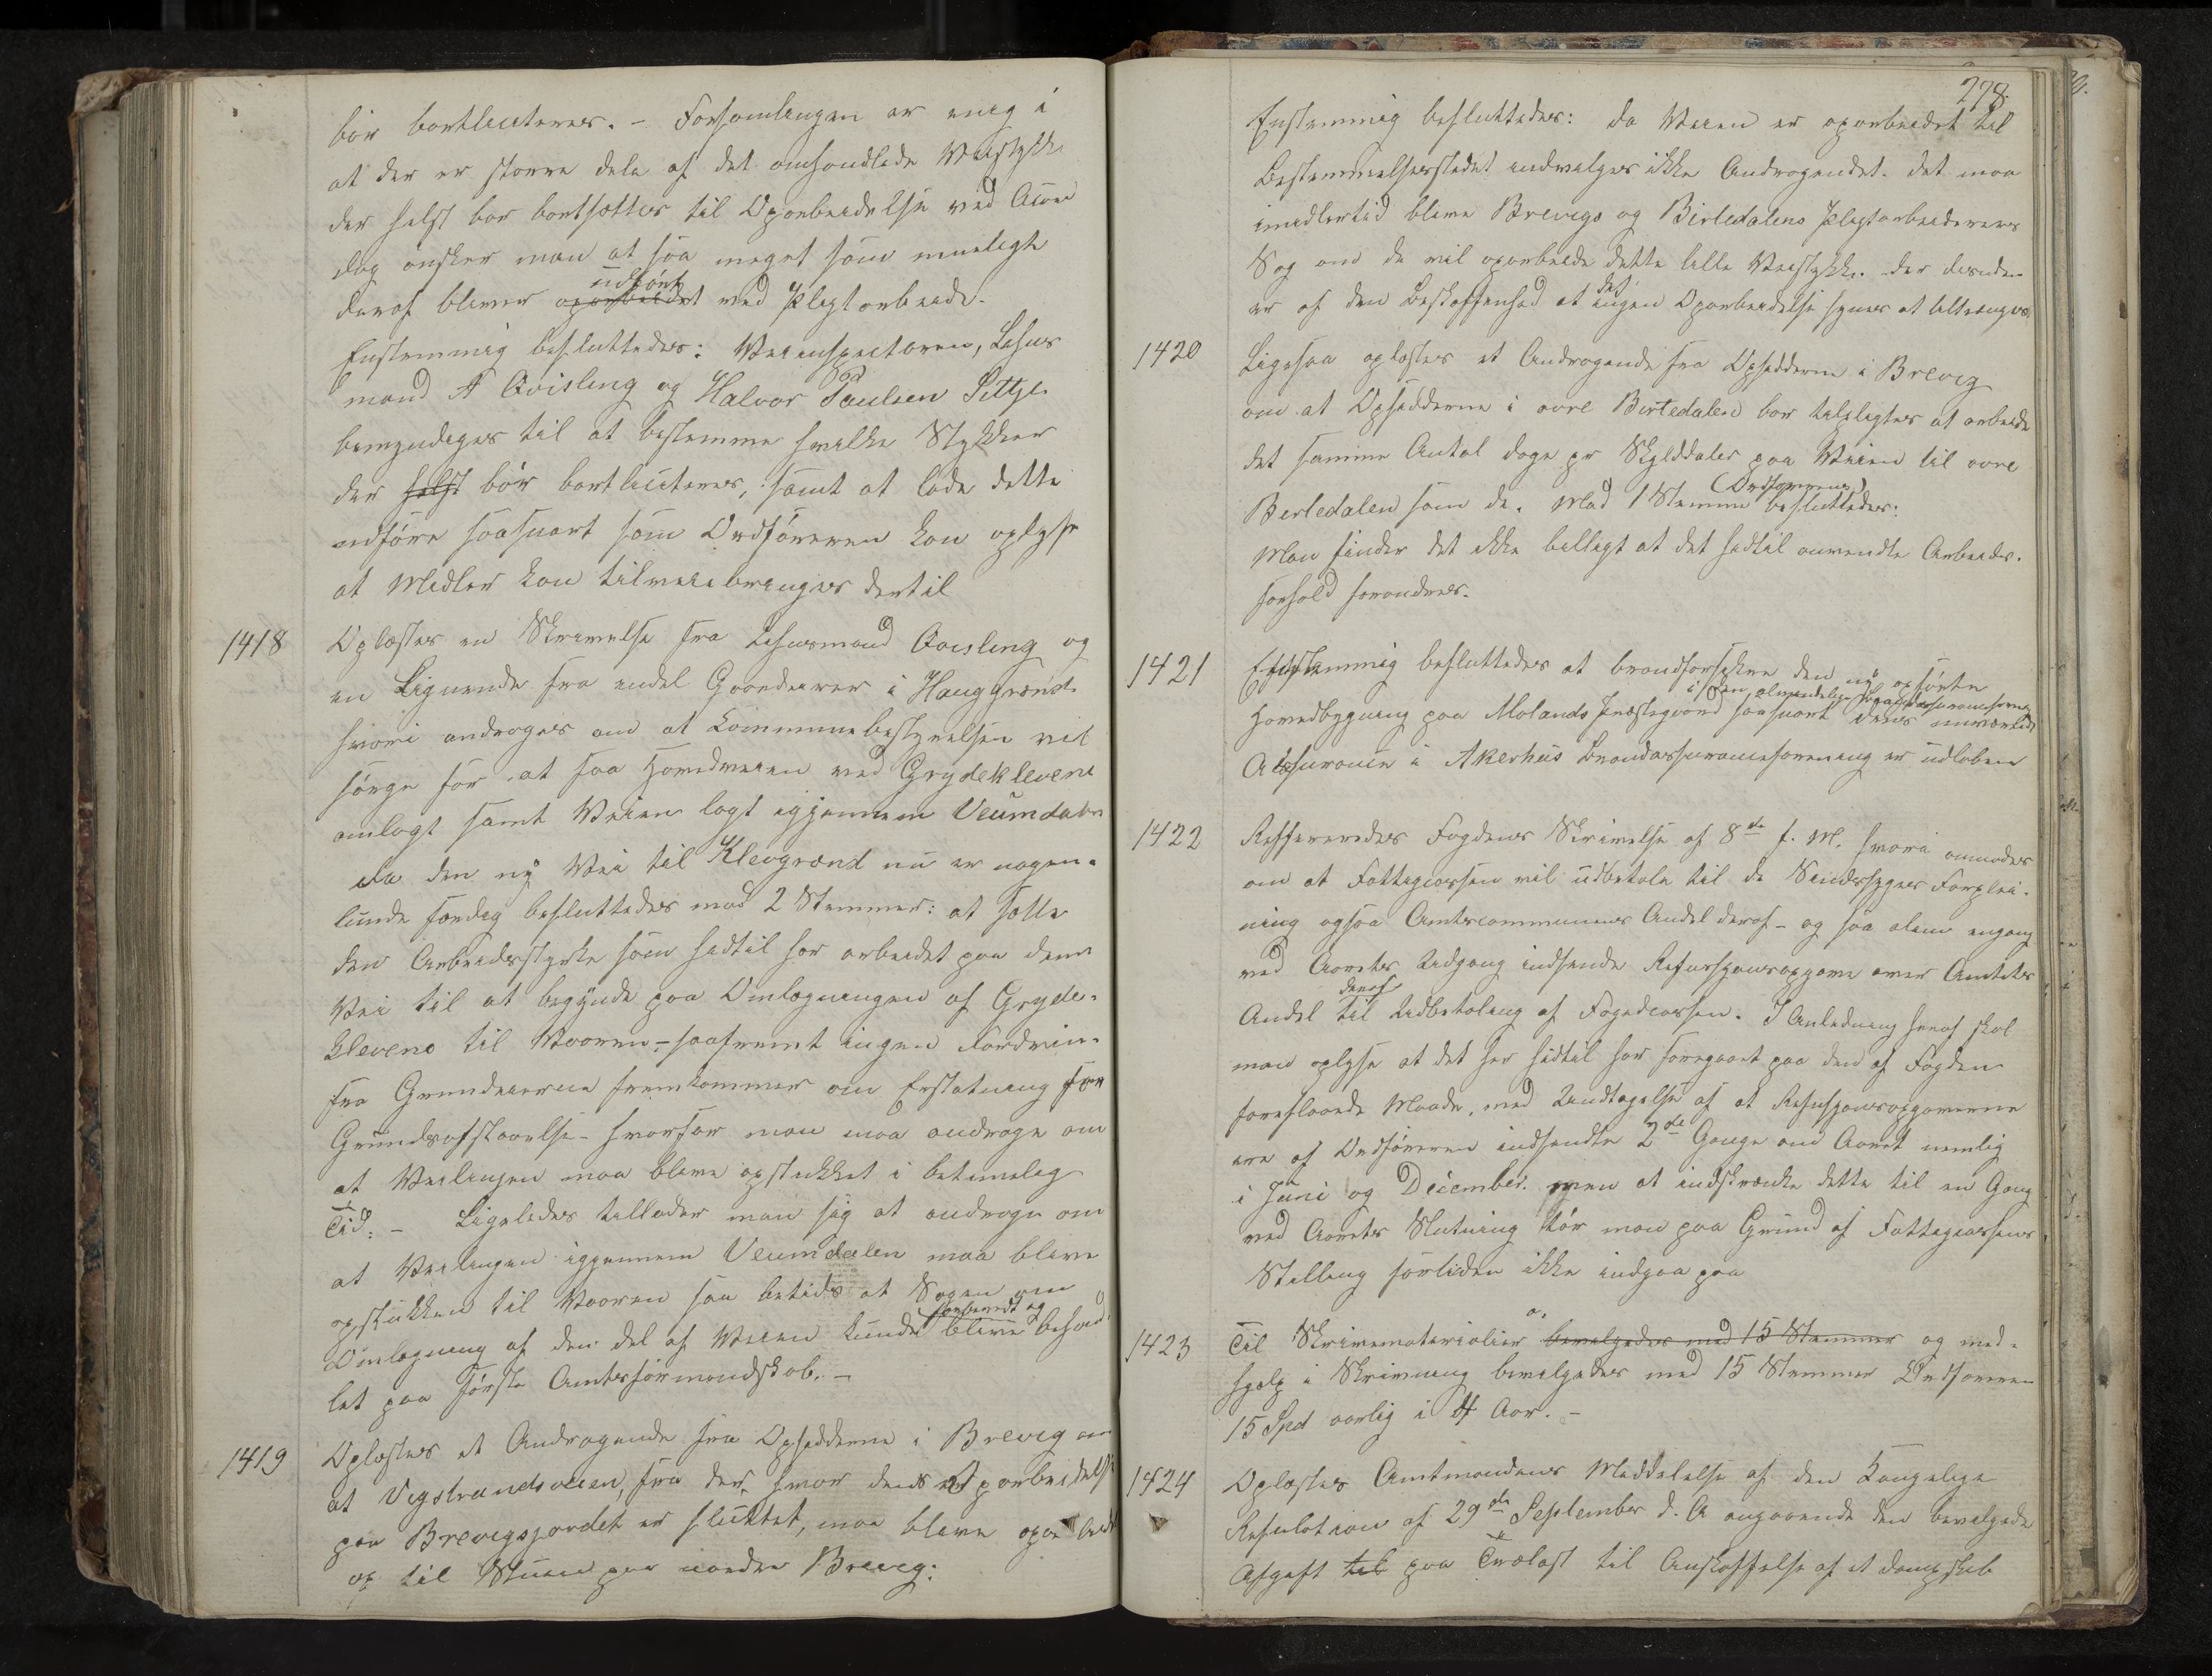 bör bortliciteres. – Forsamlingen er enig i
at der er større dele af det omhandlede Veistykke
der helst bør bortsættes til Oparbeidelse ved Accord
dog ønsker man at saa meget som mueligt
udført
deraf bliver oparbeidet ved Pligtarbeide.
Enstemmig besluttedes: Veiinspectoren, Lehns
mand A Qvisling og Halvor Paulsen Sittje
bemyndiges til at bestemme hvilke Stykker
der helst bör bortliciteres, samt at lade dette
udføre saasnart som Ordføreren kan oplyse
at Midler kan tilveiebringes dertil
1418 Oplæstes en Skrivelse fra Lehnsmand Qvisling og
en Lignende fra endel Gaardeiere i Hauggrænd
hvori andrages om at Kommunebestyrelsen vil
sørge for at faa Hovedveien ved Grydeklevene
omlagt samt Veien lagt igjennem Veumdalen
da den ny Vei til Klevgrænd nu er nogen-
lunde færdig besluttedes mod 2 Stemmer: at sætte
den Arbeidsstyrke som hidtil har arbeidet paa denne
Vei til at begynde paa Omlægningen af Gryde-
klevene til Vaaren – saafremt ingen Fordrin-
fra Grundeierne fremkommer om Erstatning for
Grundsafstaaelse – hvorfor man maa andrage om
at Veilinjen maa blive opstukket i betimelig
Tid. – Ligeledes tillader man sig at andrage om
at Veilinjen igjennem Veumdalen maa blive
opstukken til Vaaren saa betids at Sagen om
forberedt og
Omlægning af den del af Veien kunde blive behand-
let paa første Amtsformandskab. –
1419 Oplæstes et Andragende fra Opsidderne i Brevig om
at Vigstrandsveien, fra der, hvor dens Oparbeidelse
paa Brevigsjordet er sluttet, maa blive oparbeidet
op til Stuen paa nordre Brevig:
278.
Enstemmig besluttedes: da Veien er oparbeidet til
Bestemmelsesstedet indvilges ikke Andragendet. det maa
imidlertid blive Brevigs og Birtedalens Pligtarbeideres
Sag om de vil oparbeide dette lille Veistykke. der desuden
det
er af den Beskaffenhed at ingen Oparbeidelse synes at tiltrænges
1420 Ligesaa oplæstes et Andragende fra Opsidderne i Brevig
om at Opsidderne i øvre Birtedalen bør tilpligtes at arbeide
det samme Antal dage pr Skylddaler paa Veien til øvre
(Ordførerens)
Bertedalen som de. Mod 1 Stemme besluttedes:
Man finder det ikke billigt at det hidtil anvendte Arbeids-
forhold forandres.
1421 Enstemmig besluttedes at brandforsikre den ny opførte
i den almindelige Brandassuranceforening
Hovedbygning paa Molands Præstegaard saasnart dens nuværende
Assurance i Akerhus Brandassuranceforening er udløben
1422 Reffereredes Fogdens Skrivelse af 8de f. M. hvori anmodes
om at Fattigcassen vil udbetale til de Sindssyges Forplei-
ning ogsaa Amtscommunens Andel deraf – og saa alene engang
ved Aarets Udgang indsende Refusjonsopgave over Amtets
deraf
Andel til Udbetaling af Fogedcassen. I Anledning heraf skal
man oplyse at det her hidtil har foregaaet paa den af Fogden
foreslaaede Maade, med Undtagelse af at Refusjonsopgaverne
ere af Ordføreren indsendte 2de Gange om Aaret nemlig
i Juni og December. men at indskrænke dette til en Gang
ved Aarets Slutning tør man paa Grund af Fattigcassens
Stilling forliden ikke indgaa paa
1423 Til Skrivematerialier bevilgedes med 15 Stemmer og med-
hjælp i Skrivning bevilgedes med 15 Stemmer Ordføreren
15 Spd aarlig i 4 Aar. –
1424 Oplæstes Amtmandens Meddelelse af den Kongelige
Resulotion af 29de September d. A angaaende den bevilgede
Afgift til paa Trælast til Anskaffelse af et dampskib